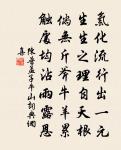 氣化流行出一元
生生之理自天根
倘無斧斤牛羊累
觸處均沾雨露恩
陳普孟子牛山詞典網